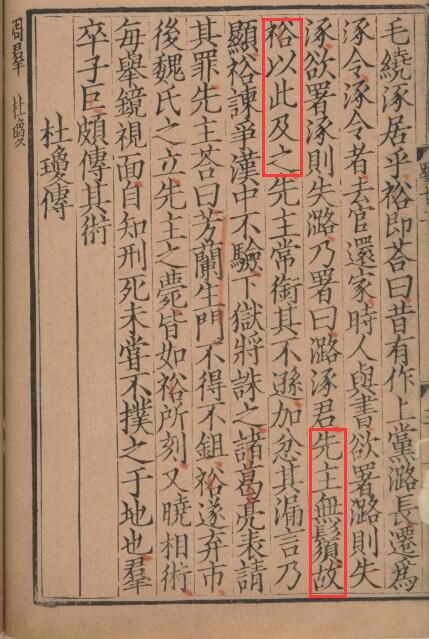 毛繞涿居乎裕即荅曰昔有作上黨潞長遷為
涿令涿令者去官還家時人與書欲署潞則失
涿欲署涿則失潞乃署曰潞涿君先主無鬚故
裕以此及之先主常銜其不遜加忿其漏言乃
顯裕諫爭漢中不驗下獄將誅之諸葛亮表請
其罪先主荅曰芳蘭生門不得不鉏裕遂弃市
後魏氏之立先主之薨皆如裕所刻又曉相術
每舉鏡視面自知刑死未嘗不撲之于地也羣
卒子巨頗傳其術
杜瓊傳
周羣 杜瓊